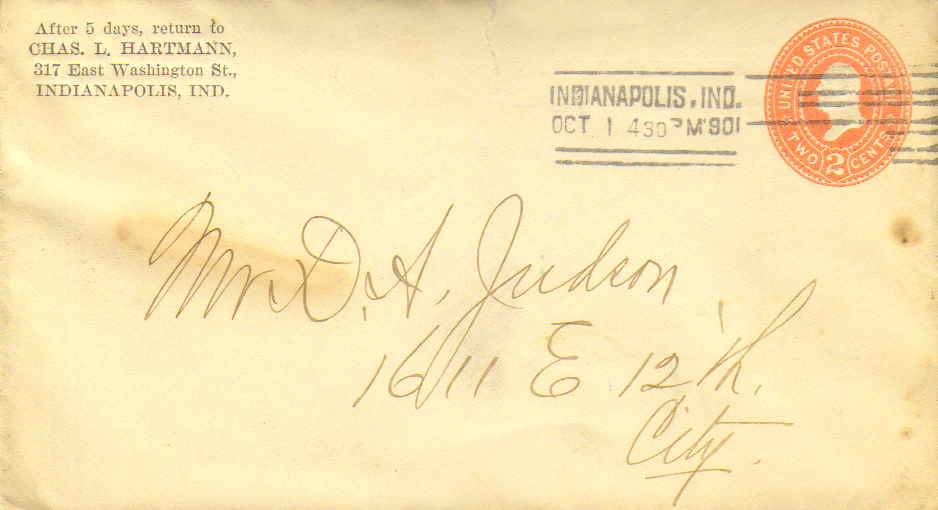 After 5 days, return to
CHAS. L. HARTMANN,
317 East Washington St.,
INDIANAPOLIS, IND.
INDIANAPOLIS, IND.
OCT 1 430 PM '901
UNITED STATES POSTAGE
TWO 2 CENTS
Mr. D. A. Judson
1611 E 12'th.
City.